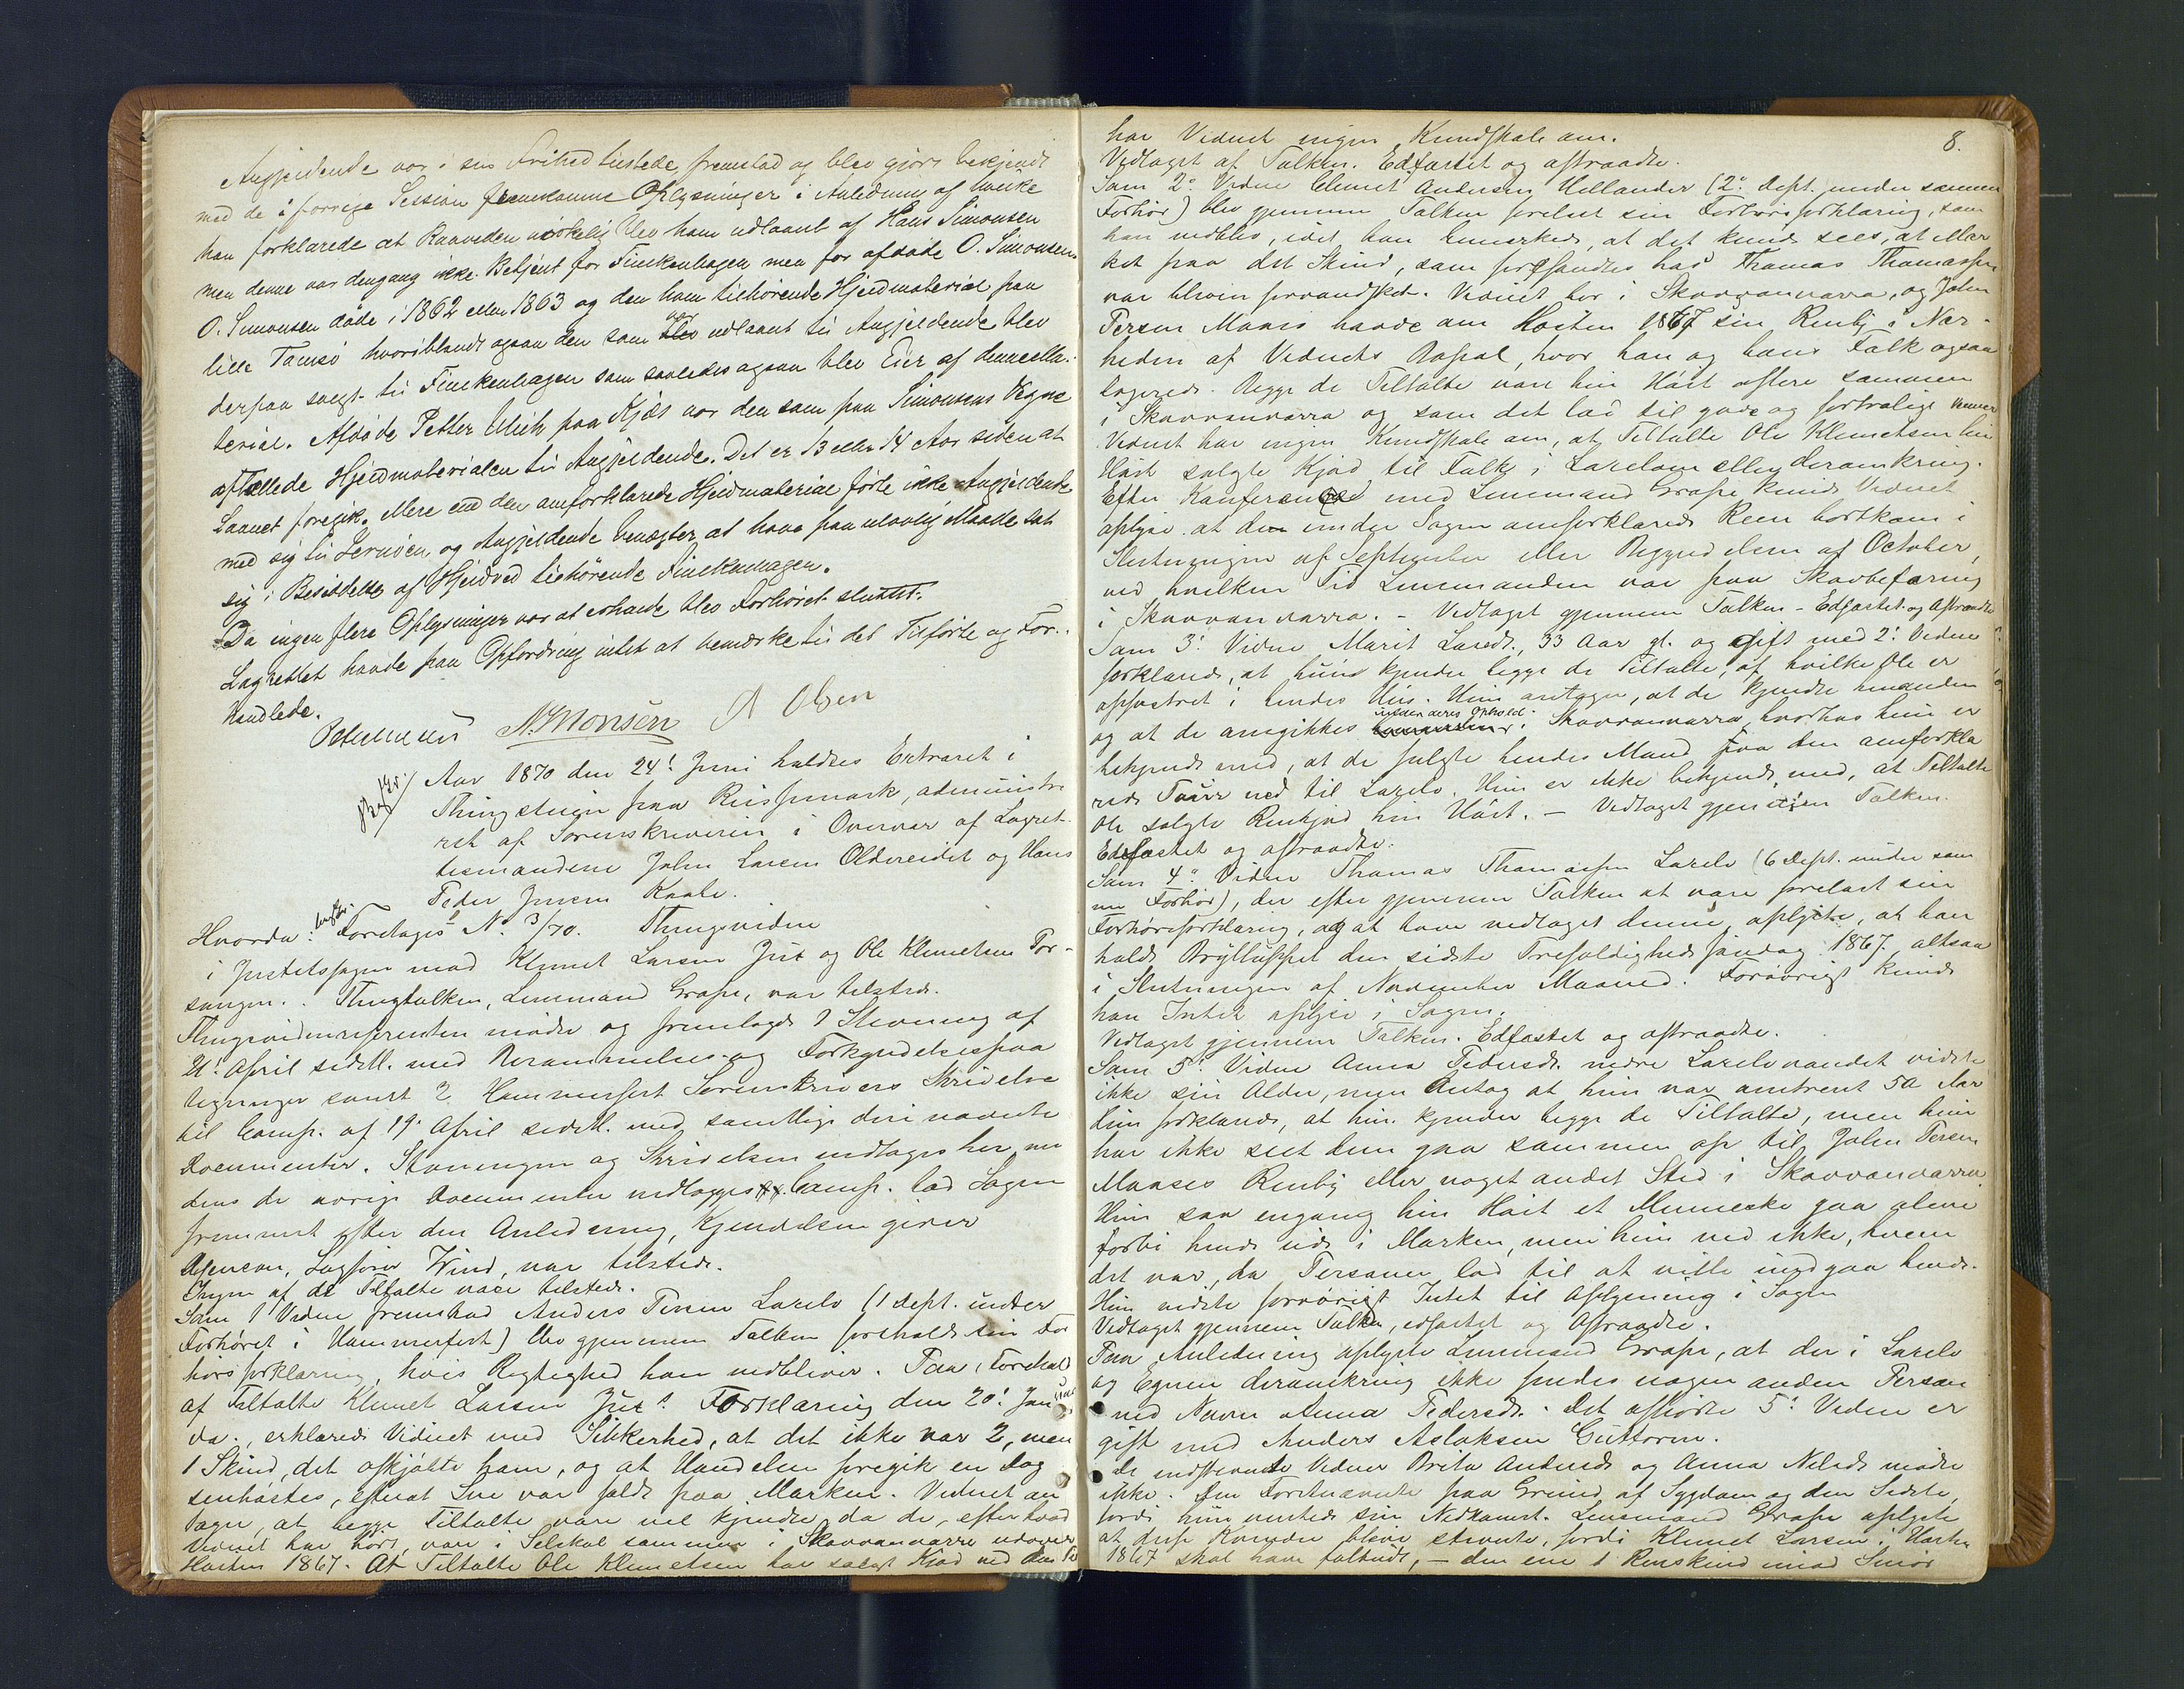 Angjeldende var i sin Frihed tilstede fremstod og blev gjort bekjendt
med de i forrige Session fremkomne Oplysninger i Anledning af hvilke
han forklarede at Raaveden virkelig blev ham udlaant af Hans Simonsen
men denne var dengang ikke Betjent for Finckenhagen men for afdøde O. Simonsen
O. Simonsen døde i 1862 eller 1863 og den ham tilhørende Hjeldmateriel paa
lille Tamsø hvoriblandt ogsaa den som blev var udlaant til Angjeldende blev
derpaa solgt til Finckenhagen som saaledes ogsaa blev Eier af denne Ma-
terial. Afdøde Petter Ulich paa Kjæs var den som paa Simonsens Vegne
aftællede Hjeldmaterialen til Angjeldende. Det er 13 eller 14 Aar siden at
Laanet foregik. Mere end den omforklarede Hjeldmateriale førte ikke Angjeldende
med sig til og Angjeldende benægter at have paa ulovlig Maade sat
sig i Besiddelse af Hjeldved tilhørende Finckenhagen.
Da ingen flere Oplysninger var at erholde blev Forhøret sluttet.
Lagrettet havde paa Opfordring intet at bemærke til det Tilførte og For-
handlede.
N. Monsen Olsen
Aar 1870 den 24' Juni holdtes Extraret i
Thingstuen paa Rusfmark, administre
ret af Sorenskriveren i Overvær af Lagret-
tesmændene John Larsen Oldereidet og Hans
Peder Jensen Kaale.
Hvorda: Foretoges No 3/70. Thingsvidne
i Justitssagen mod Klemet Larsen Juz og Ole Klemetsen Por-
sanger. Thingtolken, Lensmand Grape, var tilstede.
Thingsvidnereferenten mødte og fremlagde 1 Stevning af
21' April sidstl. med Berammelses- og Forkyndelsespaa
tegninger samt 2 Hammerfest Sorenskrivers Skrivelse
til Comp. af 19' April sidstl. med samtlige deri nævnte
Documenter. Stevningen og Skrivelsen indtages her, me
dens de øvrige Documenter vedlægges Comp. lod Sagen
fremmet efter den Anledning, Kjendelsen giver
Defensor, Sagfører Wind, var tilstede.
Ingen af de Tiltalte vare tilstede.
Som 1' Vidne fremstod Anders Persen Laxelv (1 Dept. under
Forhøret i Hammerfest) blev gjennem Tolken foreholdt sin For
hørsforklaring, hvis Rigtighed han vedbliver. Paa Forehold
af Tiltalte Klemet Larsen Juz's Forklaring den 20' Janu
da., erklærede Vidnet med Sikkerhed, at det ikke var 2, men
1 Skind, det afkjøbte ham, og at Handelen foregik en Dag
senhøstes, efterat Sne var faldt paa Marken. Vidnet an
tager, at begge Tiltalte vare vel kjendte da de, efter hvad
Vidnet har hørt, vare i Selskab sammen i Skoovanvarre udover
Høsten 1867. At Tiltalte Ole Klemetsen har solgt Kjød ved den Ti
8.
har Vidnet ingen Kundskab om.
Vedtaget af Tolken. Edfæstet og aftraadte.
Som 2' Vidne Clemet Andersen Hellander (2' Dept. under samme
Forhør) blev gjennem Tolken forelæst sin Forhørsforklaring, som
han vedblev, idet han bemærkede, at det kunde sees, at Mær
ket paa det Skind, som forefandtes hos Thomas Thomassen
var bleven forvandsket. Vidnet bor i Skoovanvarra, og John
Persen Maaso havde om Høsten 1867 sin Renby i Nær-
heden af Vidnets Bopæl, hvor han og hans Folk ogsaa
logerede. Begge de Tiltalte vare hin Høst oftere sammen
i Skoovanvarra og som det lod til gode og fortrolige Venner
Vidnet har ingen Kundskab om, at Tiltalte Ole Klemetsen hin
Høst solgte Kjød til Folk i Laxelven eller deromkring.
Efter Konference med Lensmand Grape kunde Vidnet
oplyse at den under Sagen omforklarede Ren bortkom i
Slutningen af September eller Begyndelsen af October,
ved hvilken Tid Lensmanden var paa Skovbefaring
i Skoovanvarra. - Vedtaget gjennem Tolken - Edfæstet og Aftraadte
Som 3' Vidne Marit Larsdt., 33 Aar gl. og gift med 2' Vidne
forklarede, at hun kjender begge de Tiltalte, af hvilke Ole er
opfostret i hendes Hus. Hun antager, at de kjendte hinanden
og at de omgikkes under deres Ophold i Skoovanvarra, hvorhos hun er
bekjendt med, at de fulgte hendes Mand paa den omforkla
rede Tour ned til Laxelv. Hun er ikke bekjendt med, at Tiltalte
Ole solgte Renkjød hin Høst. - Vedtaget gjennem Tolken.
Edfæstet og aftraadte.
Som 4' Vidne Thomas Thomassen Laxelv (6 Dept. under sam
me Forhør), der efter gjennem Tolken at være forelæst sin
Forhørsforklaring, og at have vedtaget denne, oplyste, at han
holdt Brylluppet den sidste Trefoldigheds Søndag 1867, altsaa
i Slutningen af November Maaned. Forøvrigt kunde
han Intet oplyse i Sagen.
Vedtaget gjennem Tolken. Edfæstet og aftraadte.
Som 5' Vidne Anna Pedersdt. nedre Laxelvvandet vidste
ikke sin Alder, men Antog at hun var omtrent 50 Aar
Hun forklarede, at hun kjender begge de Tiltalte, men hun
har ikke seet dem gaa sammen op til John Persen
Maases Renby eller noget andet Sted i Skoovanvarra
Hun saa engang hin Høst et Menneske gaa alene
forbi hende ude i Marken, men hun ved ikke, hvem
det var, da Personen lod til at ville undgaa hende.
Hun vidste forøvrigt Intet til Oplysning i Sagen
Vedtaget gjennem Tolken, edfæstet og Aftraadte.
Paa Anledning oplyste Lensmand Grape, at der i Laxelv
og Egnen deromkring ikke findes nogen anden Person
med Navn Anna Pedersdt. Det afhørte 5' Vidne er
gift med Anders Aslaksen Guttorm.
De indstevnte Vidner Brita Andersdt. og Anna Nilsdt. mødte
ikke. Den Førstnævnte paa Grund af Sygdom og den Sidste,
fordi hun ventede sin Nedkomst. Lensmand Grape oplyste
at disse Kvinder bleve stevnte, fordi Klemet Larsen i Høsten
1867 skal have faldbudt, - den ene 1 Renskind mod Smør